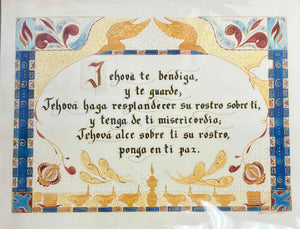 Jehová te bendiga,
y te guarde,
Jehová haga resplandecer su rostro sobre ti,
y tenga de ti misericordia;
Jehová alce sobre ti su rostro,
ponga en ti paz.